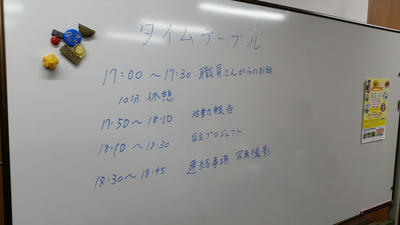 タイムテーブル
17:00 ～ 17:30 職員さんからのお話
10分 休憩
17:50 ～ 18:10 活動報告
18:10 ～ 18:30 プロジェクト
18:30 ～ 18:45 連絡事項・写真撮影